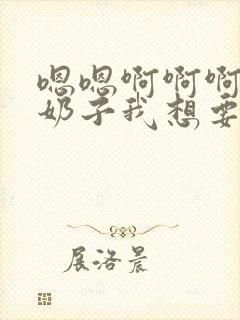 嗯嗯啊啊啊
奶子我想要
展洛晨